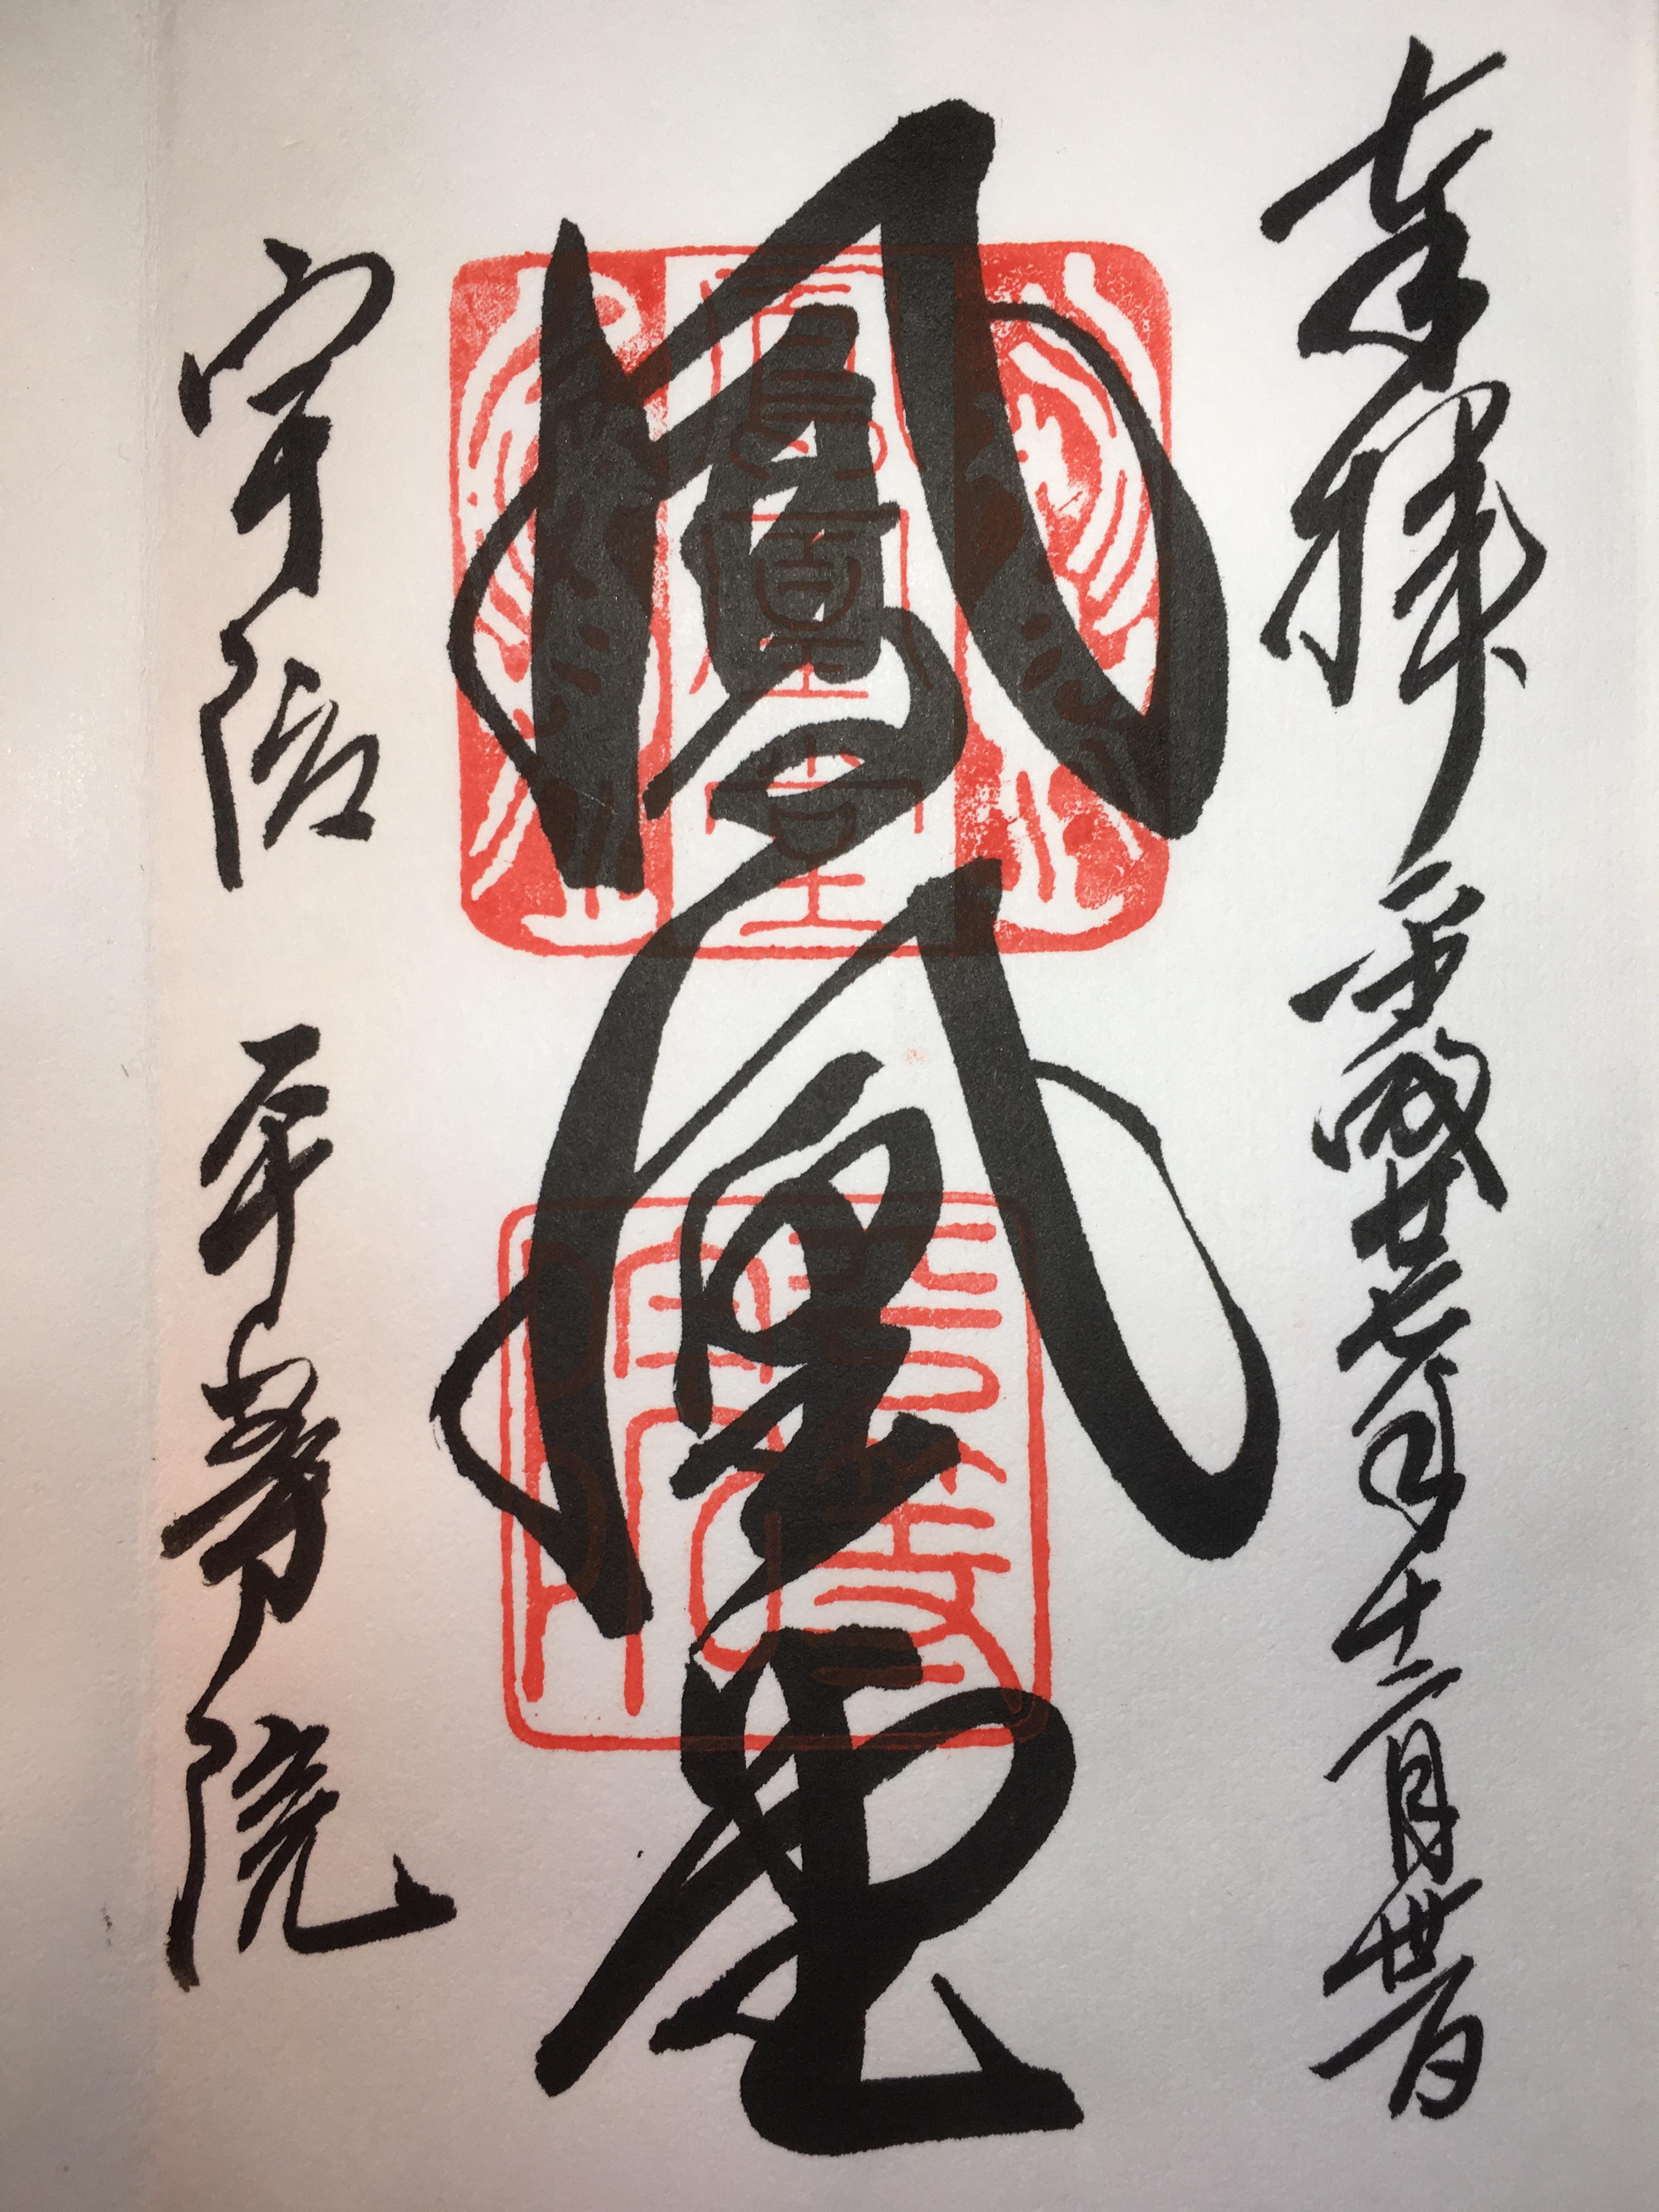 奉拝 平成廿七年十二月
鳳凰堂
宇治 平等院
鳳凰堂